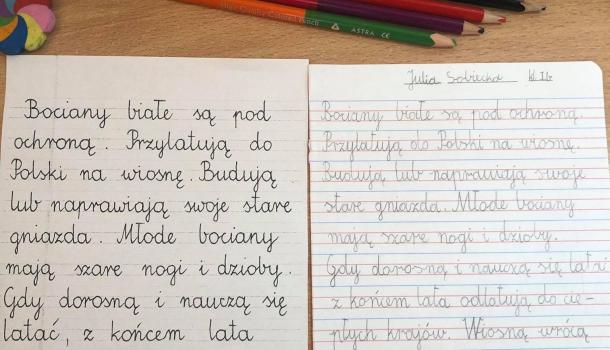 ASTRA CE
Bociany białe są pod
ochroną. Przylatują do
Polski na wiosnę. Budują
lub naprawiają swoje stare
gniazda. Młode bociany
mają szare nogi i dzioby.
Gdy dorosną i nauczą się
latać, z końcem lata
Julia Sobiecka kl. II b
Bociany białe są pod ochroną.
Przylatują do Polski na wiosnę.
Budują lub naprawiają swoje
stare gniazda. Młode bociany
mają szare nogi i dzioby.
Gdy dorosną i nauczą się latać
z końcem lata odlatują do cie-
płych krajów. Wiosną wrócą